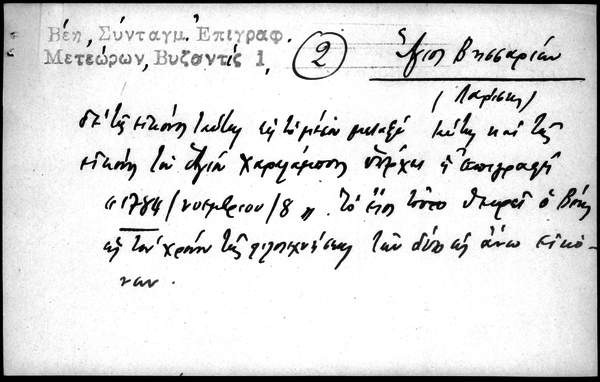 Βέη, Σύνταγμ. Επιγραφ.
Μετεώρων, Βυζαντίς 1,
2
Ἅγιος Βησσαρίων
(Λαρίσης)
τῆς εἰκόνος ταύτης εἰς τὸ μέσον μεταξὺ αὐτῆς καὶ τῆς
εἰκόνος τοῦ Ἁγίου Χαραλάμπους ὑπάρχει ἡ ἐπιγραφὴ
"1784/νοεμβρίου/8". Τὸ ἔτος τοῦτο θεωρεῖ ὁ Βέης
ὡς τὸν χρόνον τῆς φιλοτεχνήσεως τῶν δύο ὡς ἄνω εἰκό-
νων.